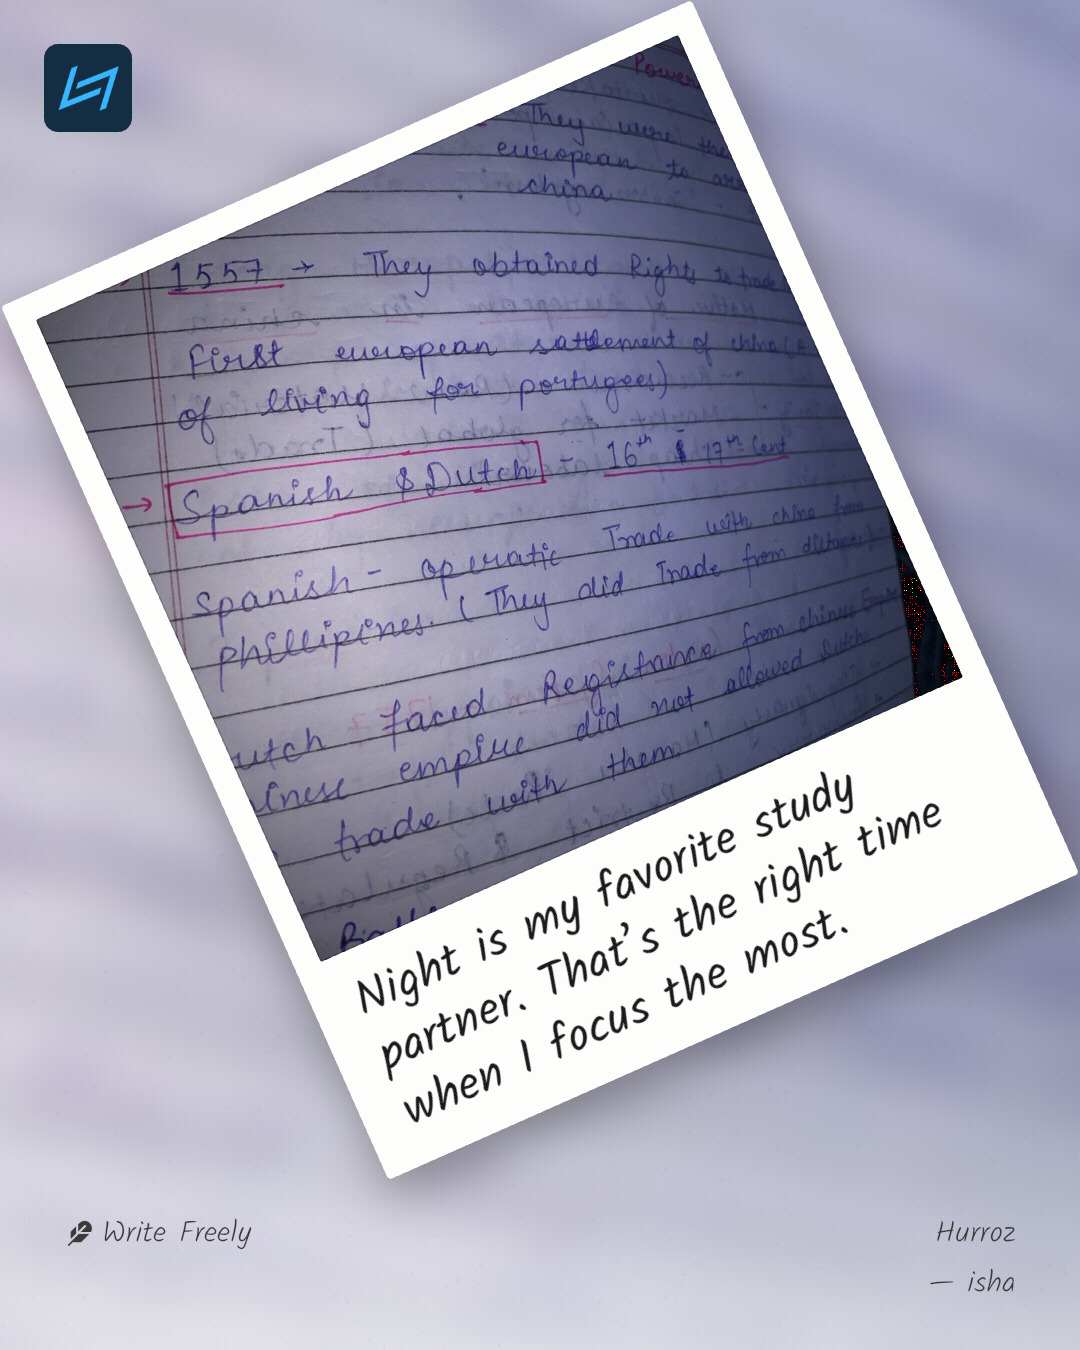 Power
They were the
european to
china
1557 → They obtained Rights to trade
First european sattlement of china (A
of living for portugoes)
→ Spanish & Dutch - 16th & 17th Cent
Spanish - operatic Trade with china from
phillipines. (They did Trade from distance)
utch faced Registrance from chinese Empire
inese empire did not allowed Dutch
trade with them
Night is my favorite study
partner. That's the right time
when I focus the most.
Write Freely
Hurroz
— isha